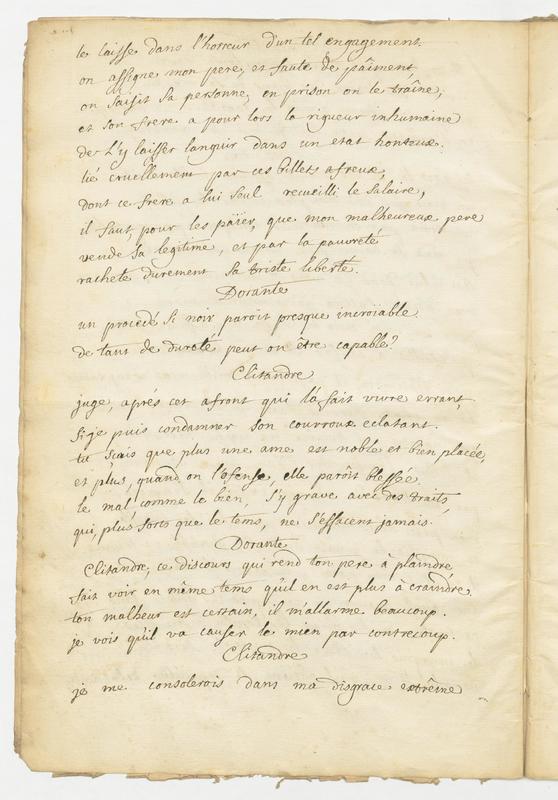 le laisse dans l'horreur d'un tel engagement.
on assigne mon pere, et faute de païment,
on saisit sa personne, en prison on le traîne,
et son frere a pour lors la rigueur inhumaine
de l'y laisser languir dans un etat honteux.
lié cruellement par ces billets afreux,
dont ce frere a lui seul recueilli le salaire,
il faut, pour les païer, que mon malheureux pere
vende sa legitime, et par la pauvreté
rachete durement sa triste liberté.
Dorante
un procedé si noir paroit presque incroïable.
de tant de dureté peut on être capable?
Clitandre
juge, aprés cet afront qui l'a fait vivre errant,
si je puis condamner son courroux eclatant.
tu sçais que plus une ame est noble et bien placée,
et plus, quand on l'ofense, elle paroît blessée.
le mal, comme le bien, s'y grave avec des traits,
qui, plus forts que le tems, ne s'effacent jamais.
Dorante
Clitandre, ce discours qui rend ton pere à plaindre,
fait voir en même tems qu'il en est plus à craindre.
ton malheur est certain, il m'allarme beaucoup.
je vois qu'il va causer le mien par contrecoup.
Clitandre
je me consolerois dans ma disgrace extrême